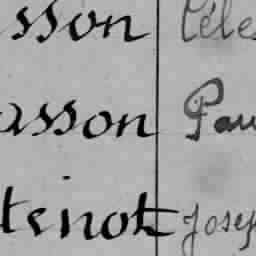 sson Céle
asson Pau
tenot Josep